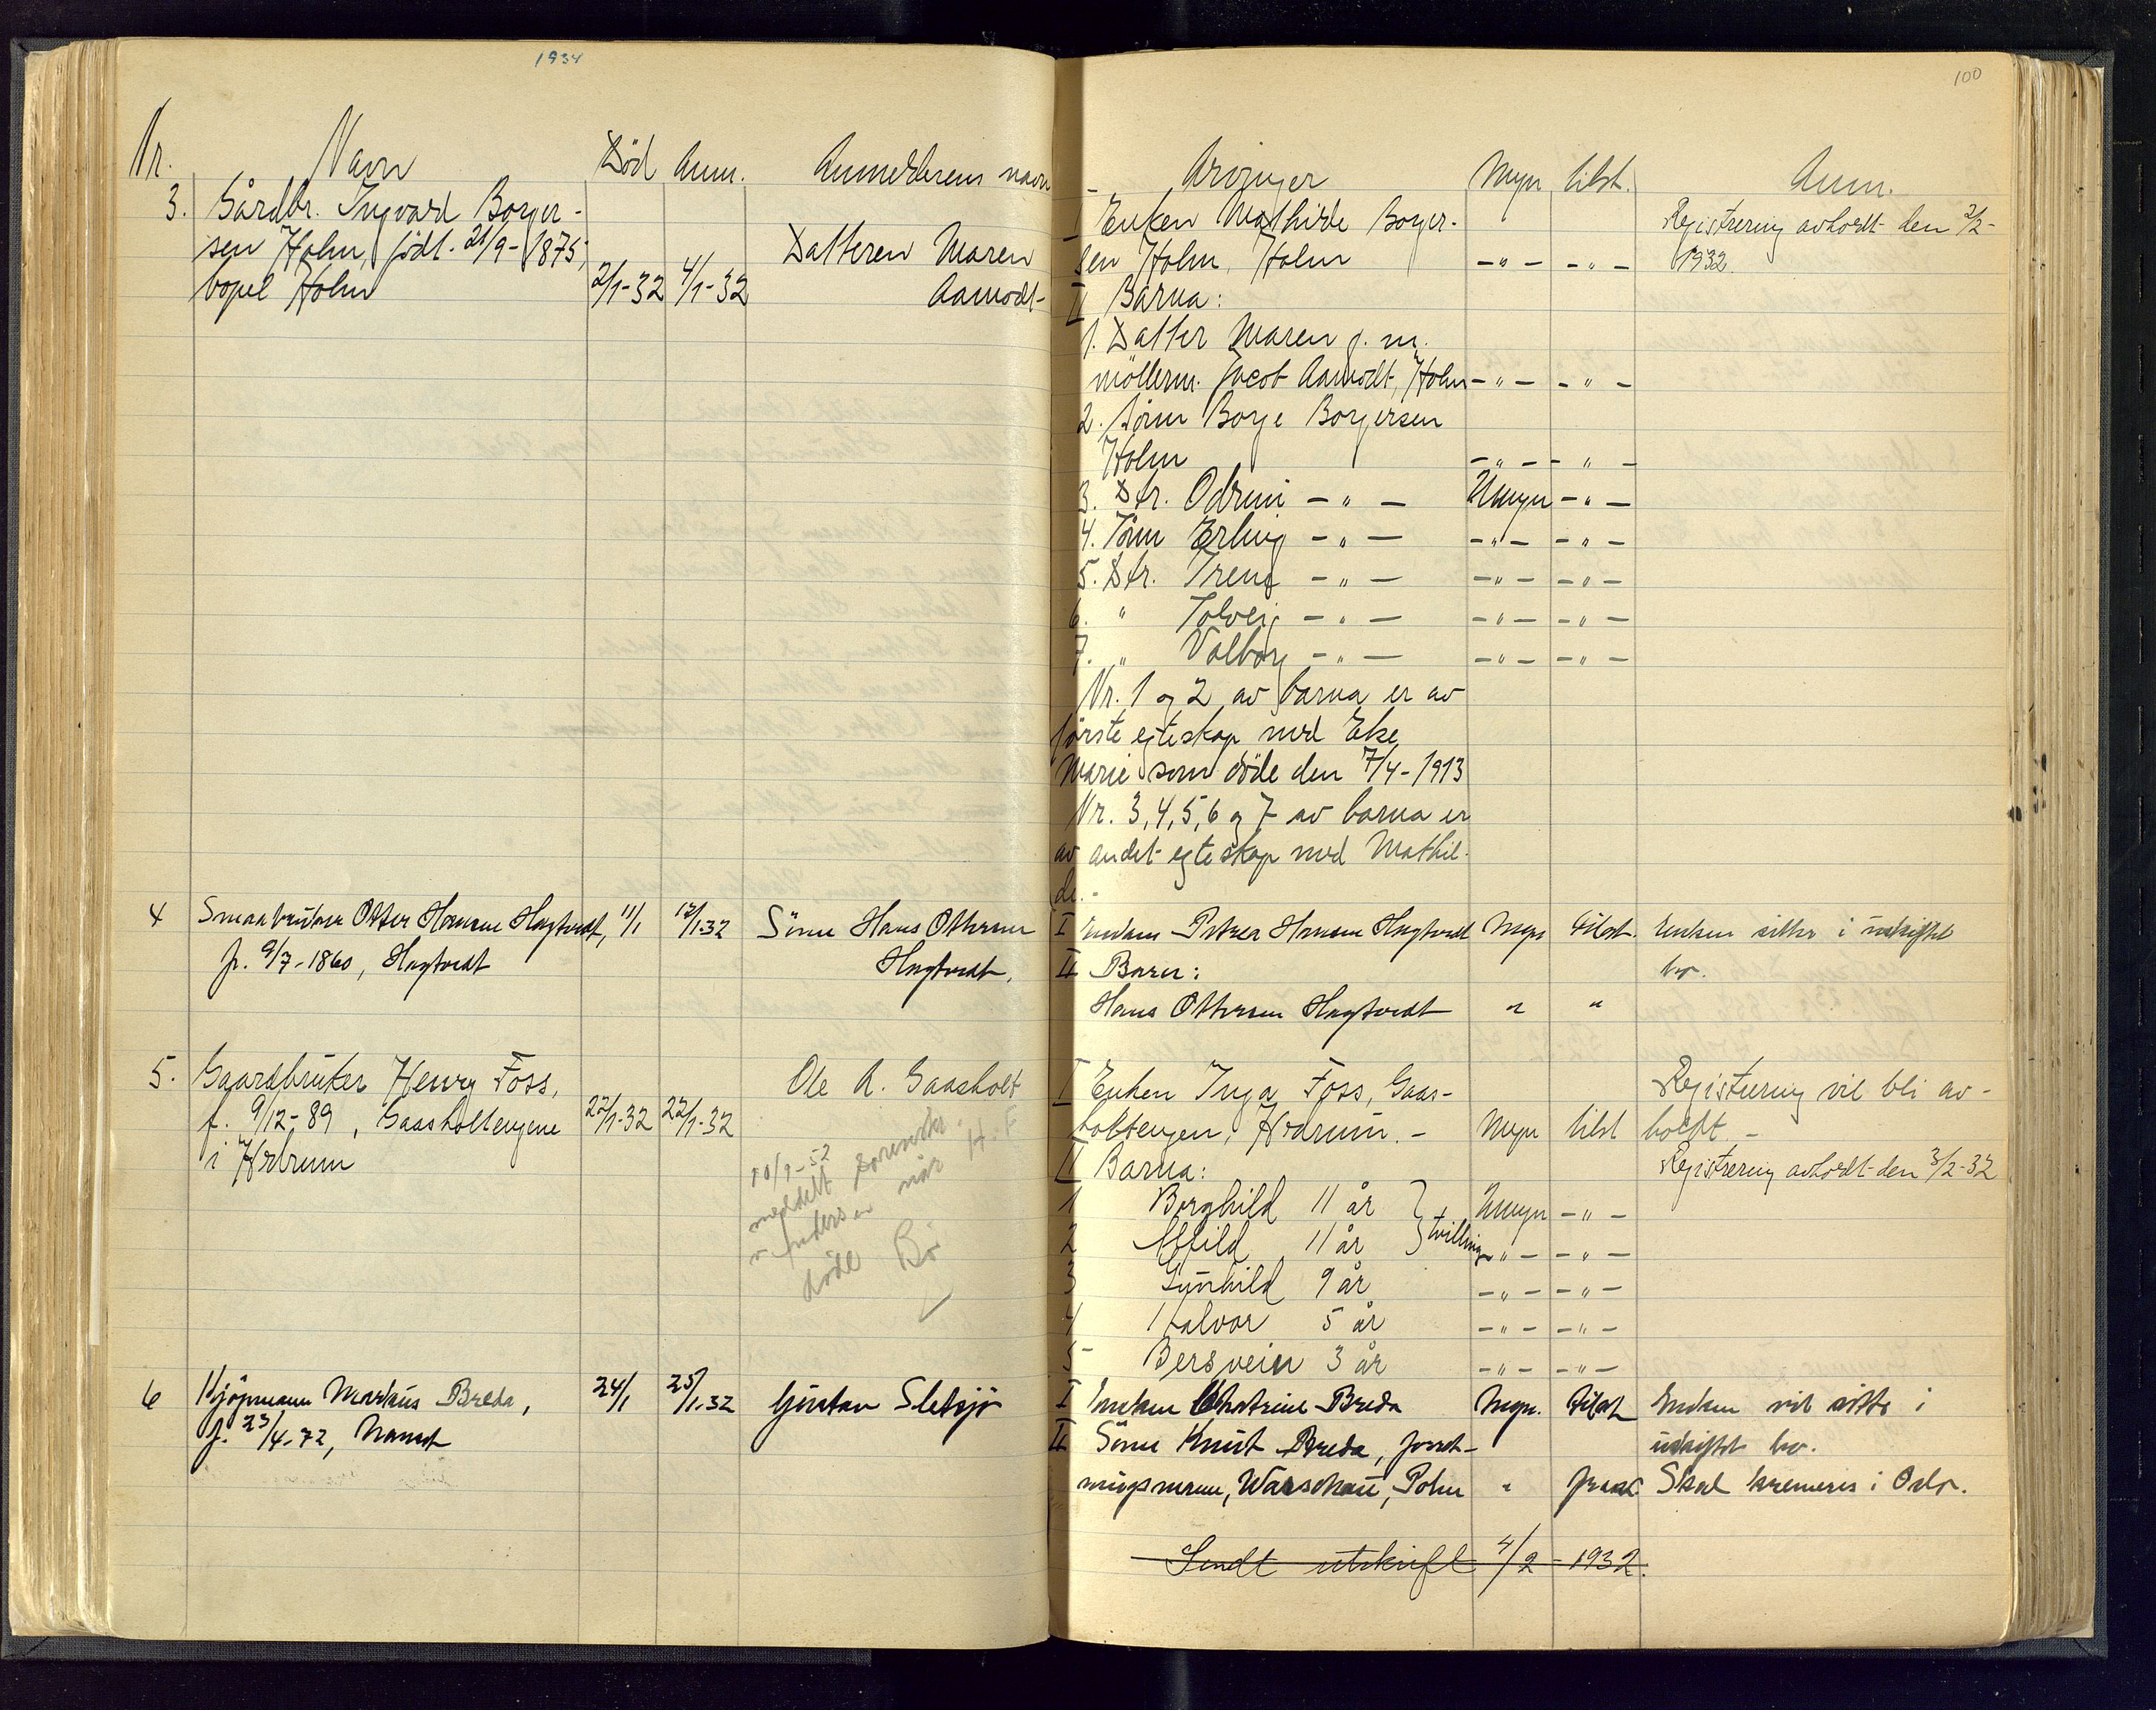 1934
Nr. Navn Död Anm. Anmelderens navn
3. Gårdbr. Ingvard Borger-
sen Holm, födt 21/9-1875,
bopel Holm 2/1-32 4/1-32 Datteren Maren
Aamodt
4 Smaabruker Otter Hansen Hagtvedt, 11/1 12/1.32 Sönn Hans Ottersen
f. 9/7-1860, Hagtvedt Hagtvedt.
5. Gaardbruker Henry Foss, Ole A. Gaasholt
f. 9/12-89, Gaasholtengene 22/1-32 22/1-32
i Hedrum
10/9-52
meddelt
Anders
döde Bö
6 Kjöpmann Markus Breda, 24/1 25/1.32 Gustav Sletsjö
f. 23/4-72, Nanset
100
Arvinger Myn tilst. Anm.
I Enken Mathilde Borger- Registrering avholdt den 2/2-
sen Holm, Holm -"- -"- 1932
II Barna:
1. Datter Maren g. m.
möllerm. Jacob Aamodt, Holm -"- -"-
2. Sönn Borge Borgersen
Holm -"- -"-
3. Dtr. Odruni -"- Umyn -"-
4. Sönn Erling -"- -"- -"-
5. Dtr. Irene -"- -"- -"-
6. " Solveig -"- -"- -"-
7. " Valborg -"- -"- -"-
Nr. 1 og 2 av barna er av
förste egteskap med Else
Marie som döde den 7/4-1913
Nr. 3, 4, 5, 6 og 7 av barna er
av andet egteskap med Mathil-
de.-
I Enken Petrea Hansen Hagtvedt Myn tilst. Enken sitter i uskiftet
II Barn: bo.
Hans Ottersen Hagtvedt " "
I Enken Inga Foss, Gaas- Registrering vil bli av-
holtengen, Hedrum.- Myn tilst holdt.-
II Barna: Registrering avholdt den 3/2-32
1 Borghild 11 år } tvilling Umyn -"-
2 Alfild 11 år -"- -"-
3 Gunhild 9 år -"- -"-
4 Halvor 5 år -"- -"-
5 Bersvein 3 år -"- -"-
I Enken Chatrine Breda Myn. tilst Enken vil sitte i
II Sönn Knut Breda, forret- uskiftet bo.
ningsmann, Warschau, Polen " frav. Skal kremeres i Oslo.
Sendt utskrift 4/2-1932.